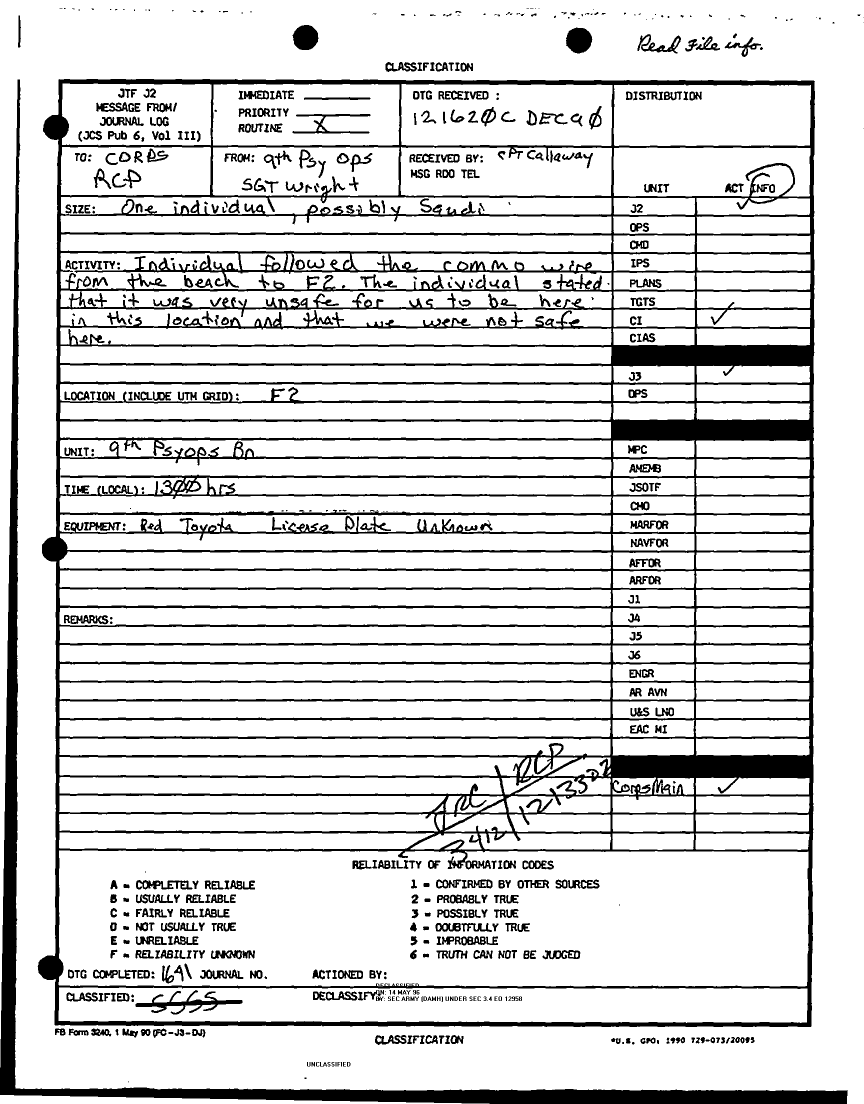 Read File info.
CLASSIFICATION
JTF J2
MESSAGE FROM/
JOURNAL LOG
(JCS Pub 6, Vol III)
IMMEDIATE
PRIORITY
ROUTINE X
DTG RECEIVED :
121620C DEC90
DISTRIBUTION
TO: CORPS
RCP
FROM: 9th Psy Ops
SGT Wright
RECEIVED BY: CPT Callaway
MSG RDO TEL
UNIT ACT INFO
SIZE: One individual, possibly Saudi
ACTIVITY: Individual followed the commo wire
from the beach to F2. The individual stated
that it was very unsafe for us to be here
in this location and that we were not safe
here.
LOCATION (INCLUDE UTM GRID): F2
UNIT: 9th Psyops Bn
TIME (LOCAL): 1300 hrs
EQUIPMENT: Red Toyota License Plate Unknown
REMARKS:
J2 ✓
OPS
CMD
IPS
PLANS
TGTS
CI ✓
CIAS
J3 ✓
OPS
MPC
ANEMB
JSOTF
CHO
MARFOR
NAVFOR
AFFOR
ARFOR
J1
J4
J5
J6
ENGR
AR AVN
U&S LNO
EAC MI
Corps Main ✓
RCP
3412
RELIABILITY OF INFORMATION CODES
A = COMPLETELY RELIABLE 1 = CONFIRMED BY OTHER SOURCES
B = USUALLY RELIABLE 2 = PROBABLY TRUE
C = FAIRLY RELIABLE 3 = POSSIBLY TRUE
D = NOT USUALLY TRUE 4 = DOUBTFULLY TRUE
E = UNRELIABLE 5 = IMPROBABLE
F = RELIABILITY UNKNOWN 6 = TRUTH CAN NOT BE JUDGED
DTG COMPLETED: 1641 JOURNAL NO. ACTIONED BY:
CLASSIFIED: DECLASSIFY
DECLASSIFIED
ON: 14 MAY 96
BY: SEC ARMY (DAMH) UNDER SEC 3.4 EO 12958
FB Form 3240, 1 May 90 (FC-J3-DJ)
CLASSIFICATION
*U.S. GPO: 1990 729-073/20095
UNCLASSIFIED